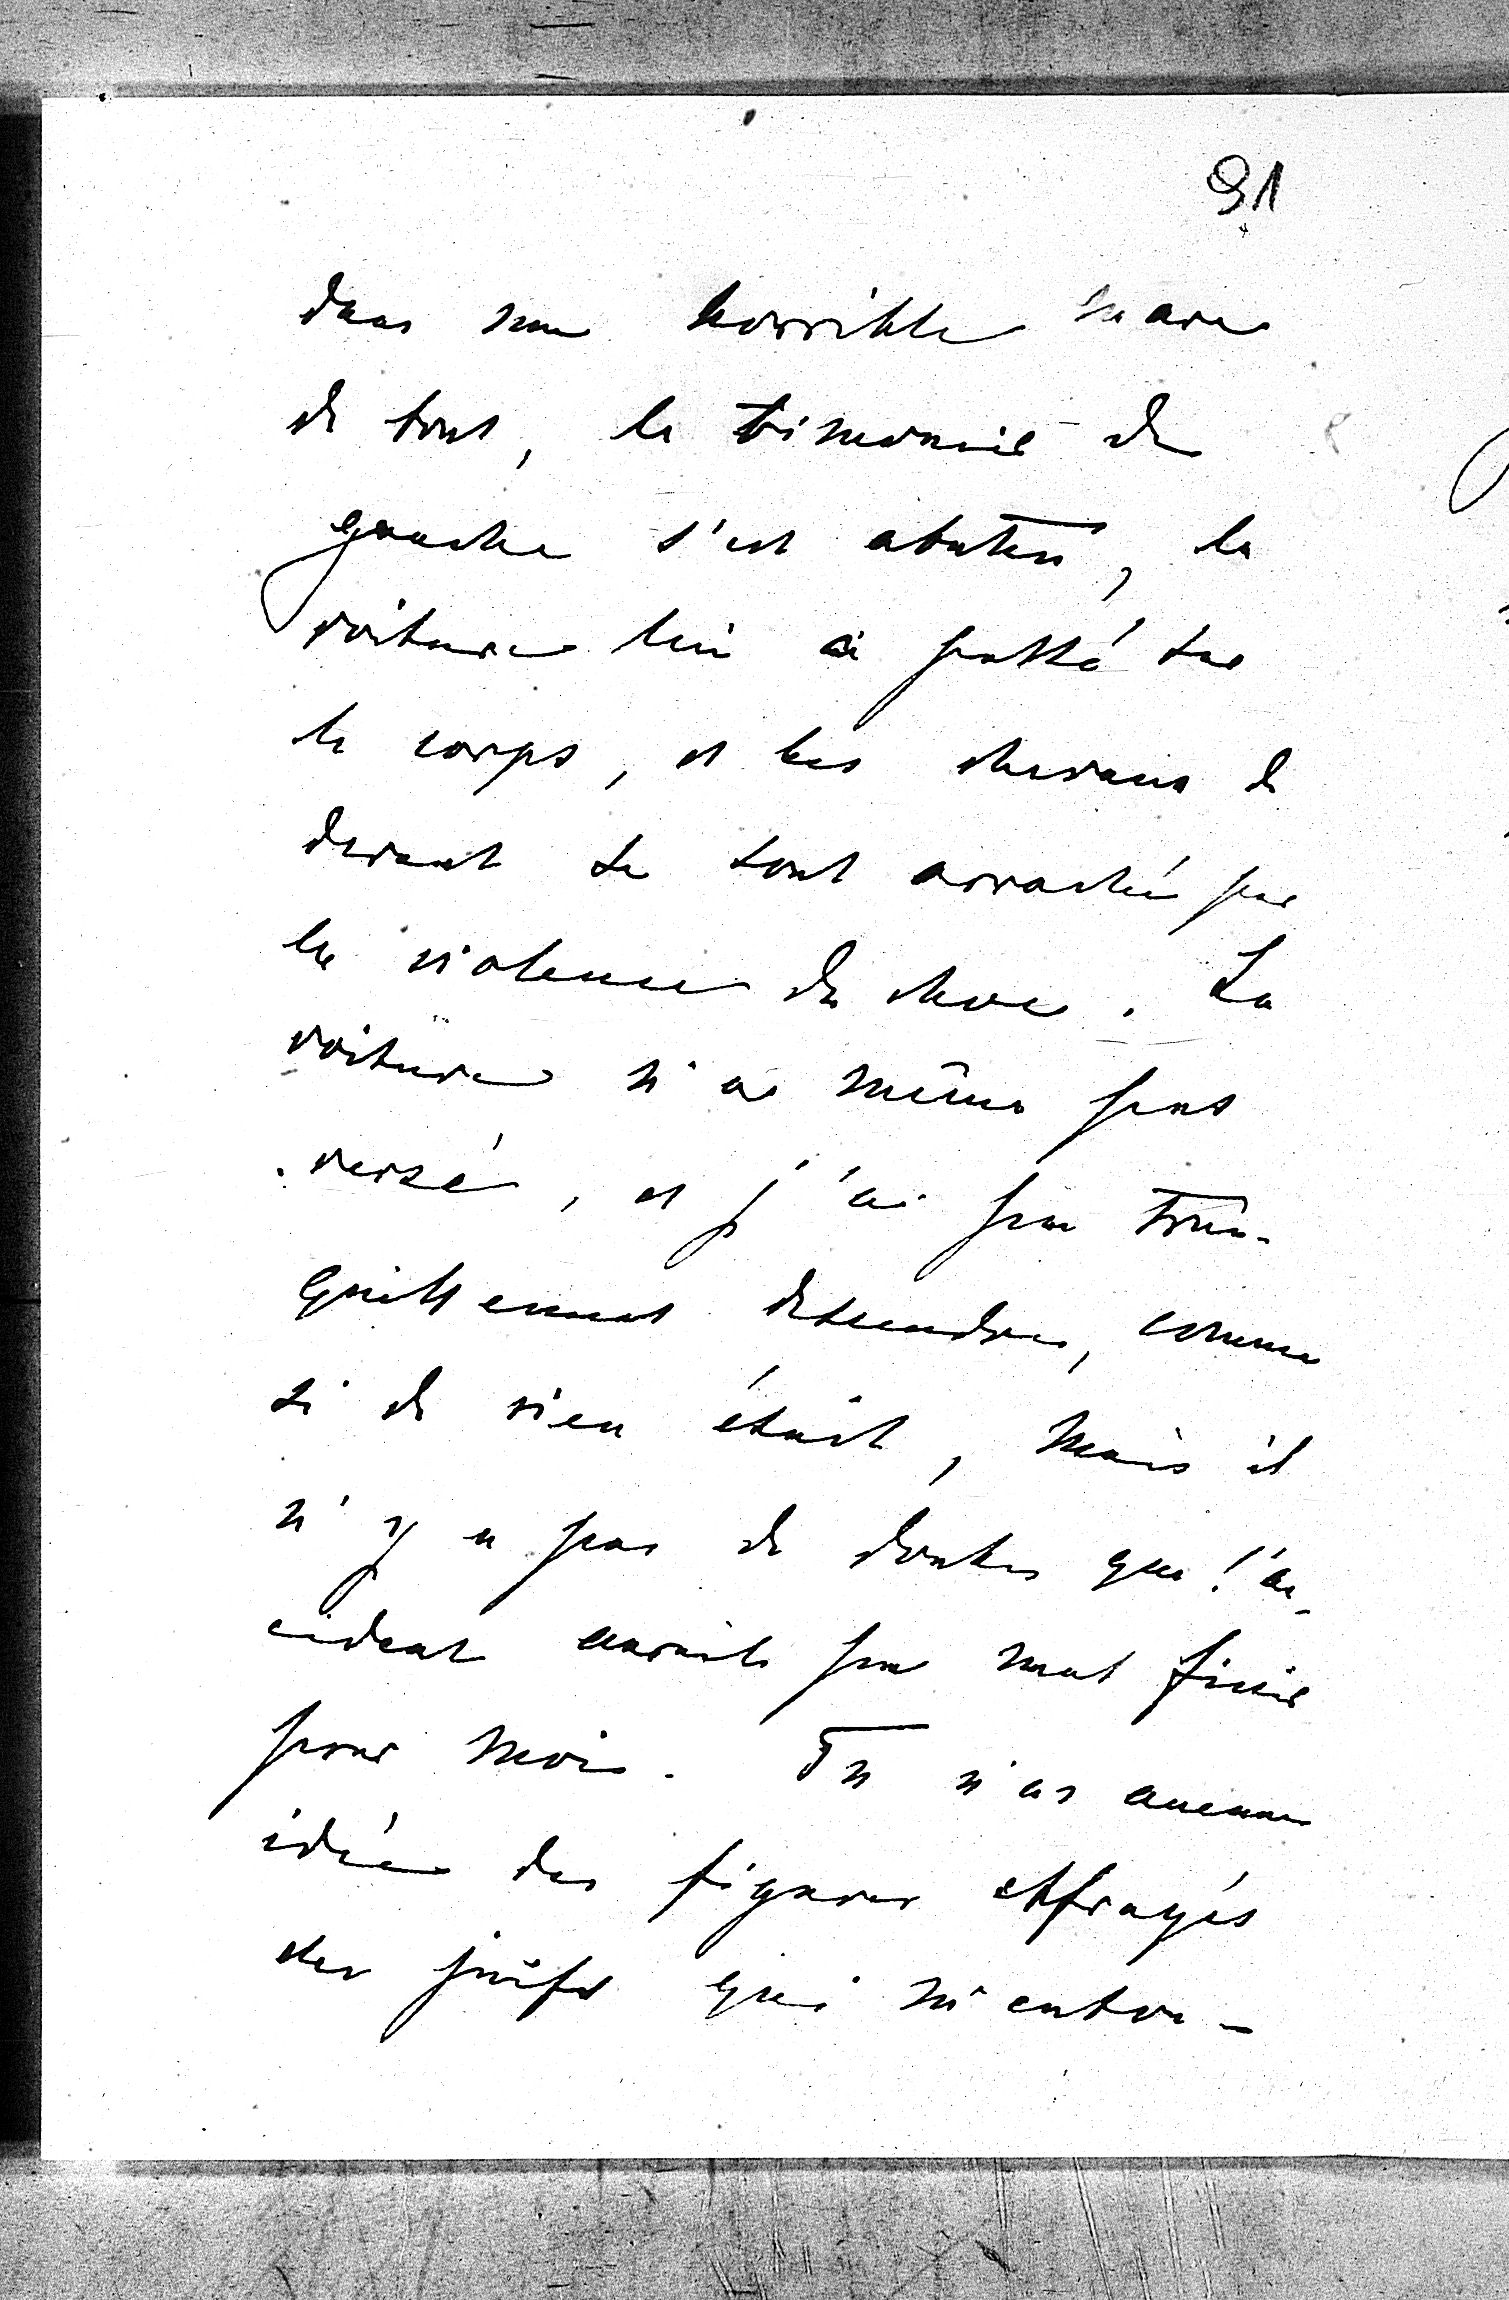 91
dans une horrible mare
de boue, le timonier de
gauche s'est abattu, la
voiture lui a passé sur
le corps, et les chevaux de
devant se sont arrachés par
la violence du choc. La
voiture n'a même pas
versé, et j'ai pu tran-
quillement descendre, comme
si de rien était, mais il
n'y a pas de doutes que l'ac-
cident aurait pu mal finir
pour moi. Tu n'as aucune
idée des figures effrayés
des juifs qui m'entou-